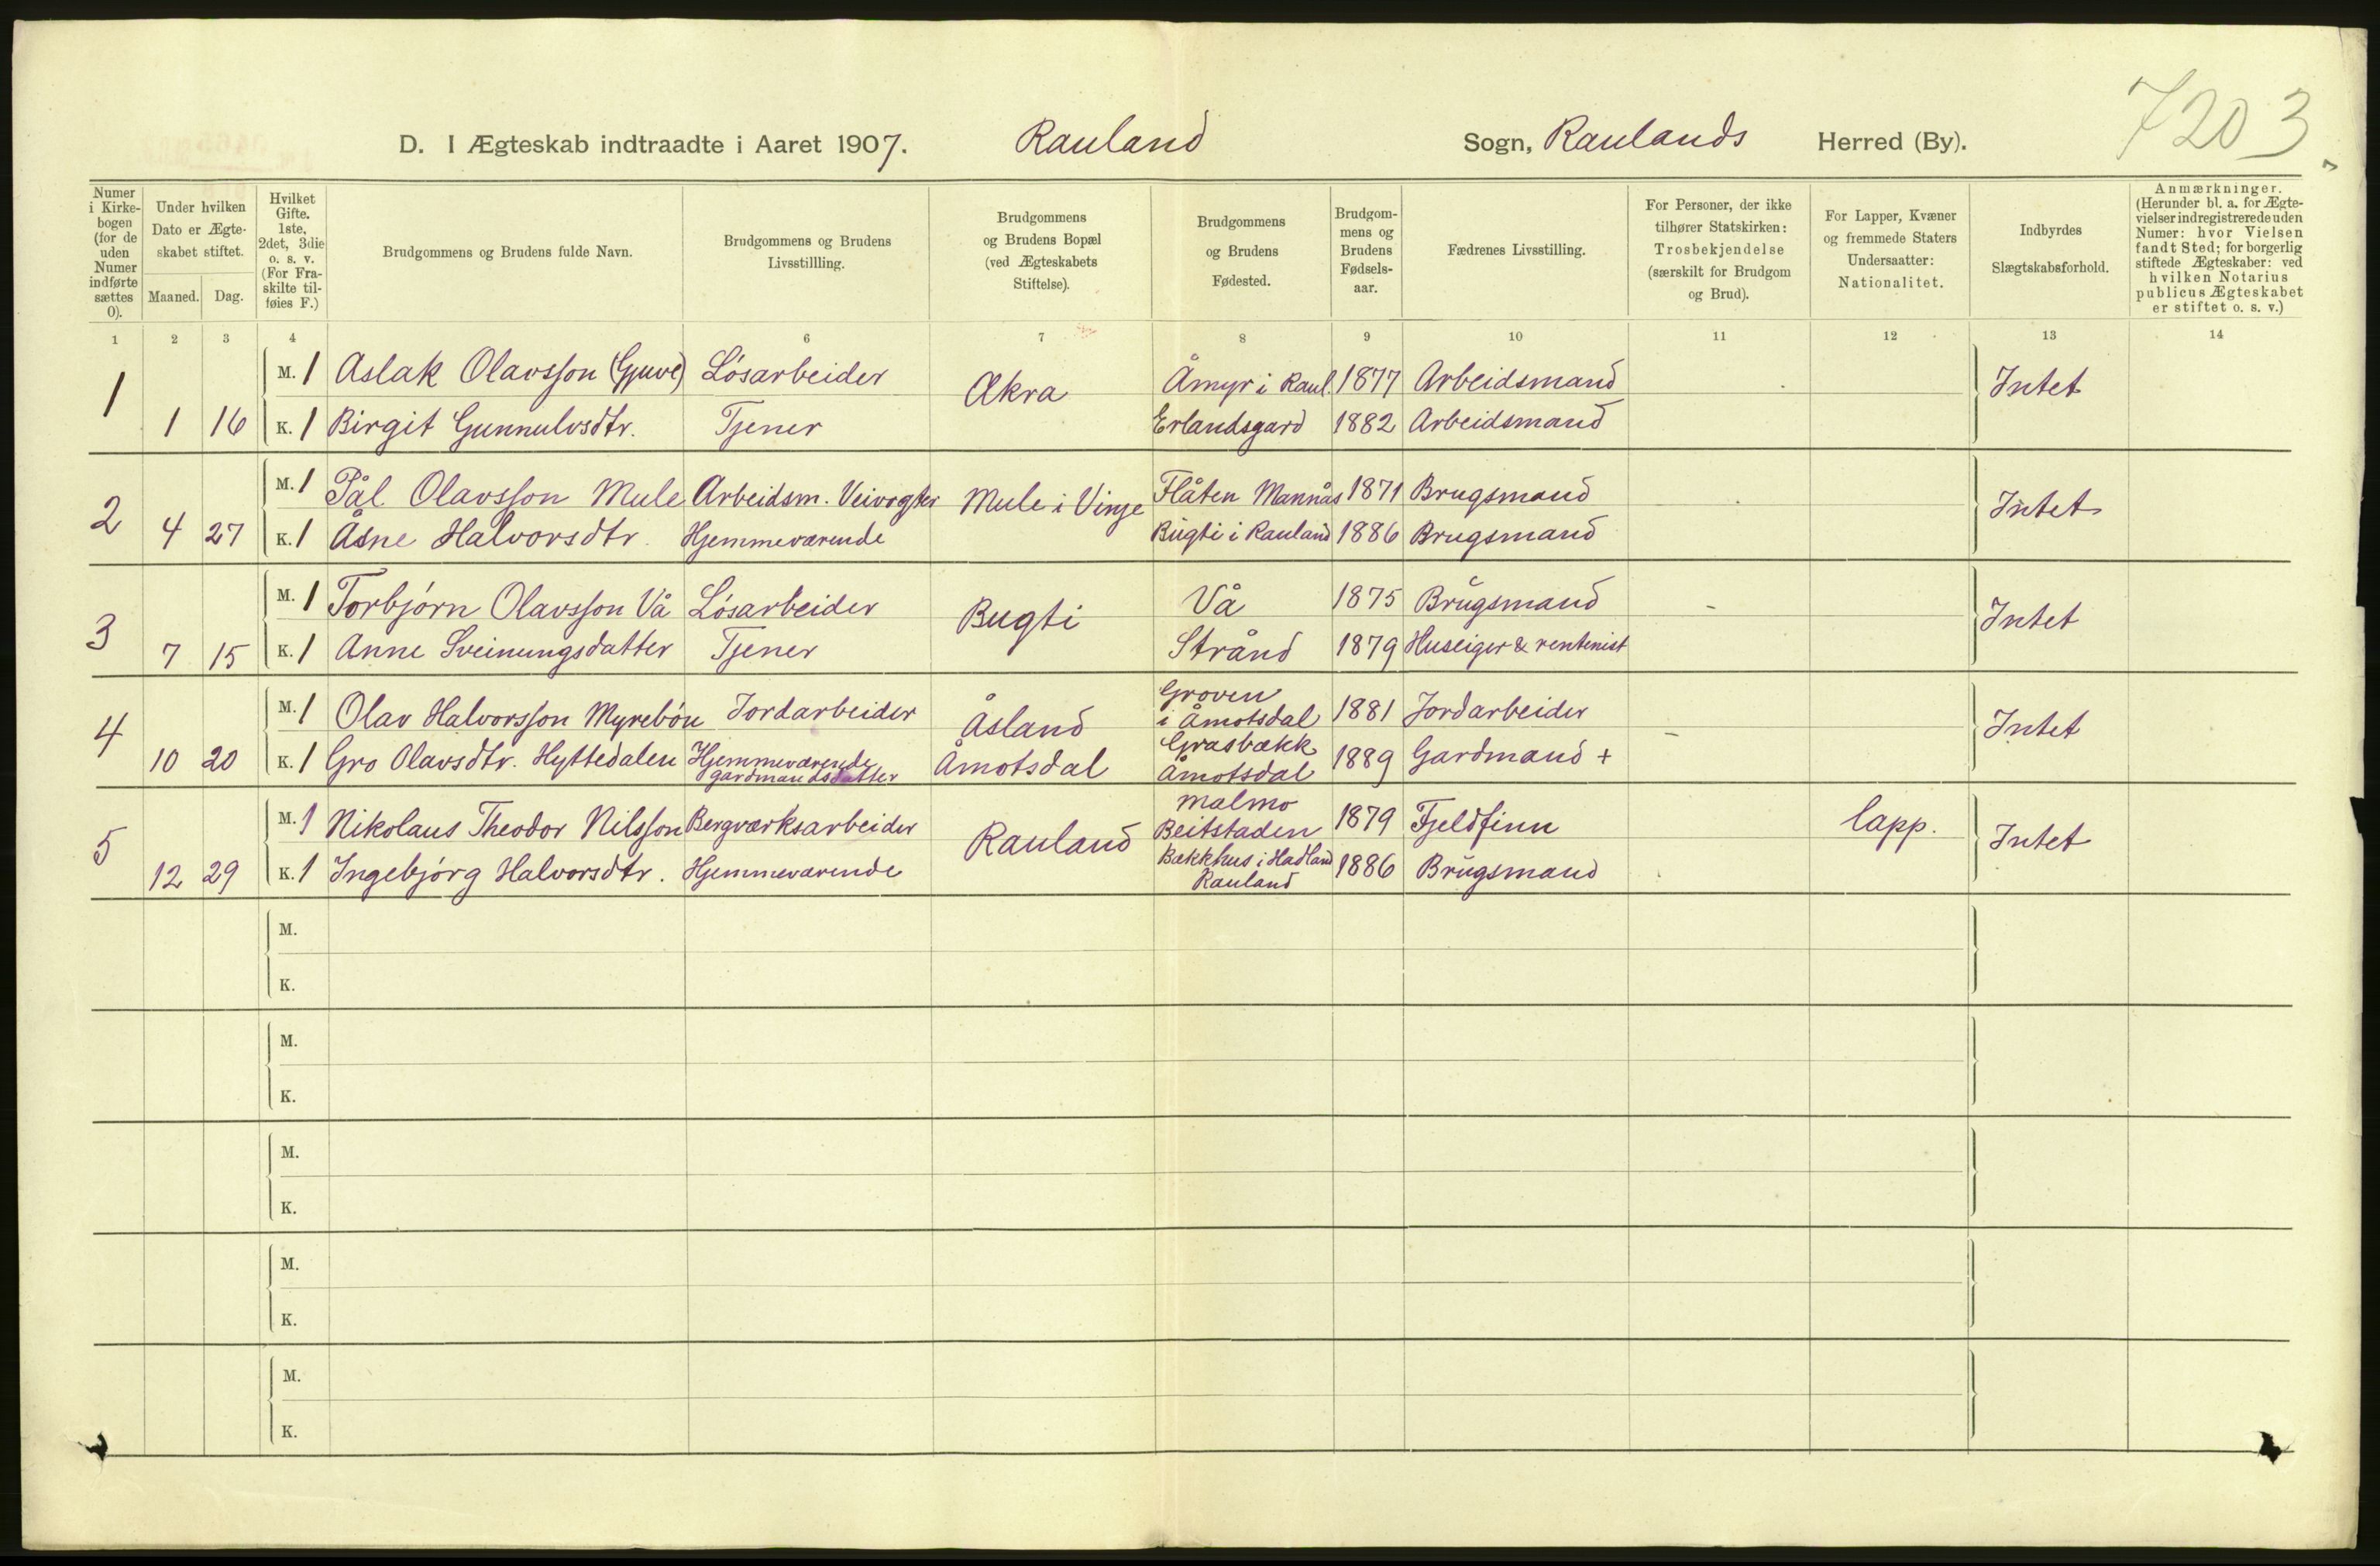 7203
D. I Ægteskab indtraadte i Aaret 1907. Rauland Sogn, Raulands Herred (By).
Numer i Kirkebogen (for de uden Numer indførte sættes 0).
Under hvilken Dato er Ægteskabet stiftet.
Maaned. Dag.
Hvilket Gifte. 1ste, 2det, 3die o. s. v. (For Fraskilte tilføies F.)
Brudgommens og Brudens fulde Navn.
Brudgommens og Brudens Livsstillling.
Brudgommens og Brudens Bopæl (ved Ægteskabets Stiftelse).
Brudgommens og Brudens Fødested.
Brudgommens og Brudens Fødselsaar.
Fædrenes Livsstilling.
For Personer, der ikke tilhører Statskirken: Trosbekjendelse (særskilt for Brudgom og Brud).
For Lapper, Kvæner og fremmede Staters Undersaatter: Nationalitet.
Indbyrdes Slægtskabsforhold.
Anmærkninger. (Herunder bl. a. for Ægtevielser indregistrerede uden Numer: hvor Vielsen fandt Sted; for borgerlig stiftede Ægteskaber: ved hvilken Notarius publicus Ægteskabet er stiftet o. s. v.)
1 2 3 4 6 7 8 9 10 11 12 13 14
1 M. 1 Aslak Olavsson (Gjuve) Løsarbeider Ækra Åmyr i Raul. 1877 Arbeidsmand Intet
1 16 K. 1 Birgit Gunnulvsdtr. Tjener Erlandsgard 1882 Arbeidsmand
2 M. 1 Pål Olavsson Mule Arbeidsm. Veivogter Mule i Vinje Flåten Mannås 1871 Brugsmand Intet
4 27 K. 1 Åsne Halvorsdtr. Hjemmeværende Bugti i Rauland 1886 Brugsmand
3 M. 1 Torbjørn Olavsson Vå Løsarbeider Bugti Vå 1875 Brugsmand Intet
7 15 K. 1 Anne Sveinungsdatter Tjener Strånd 1879 Huseiger & rentenist
4 M. 1 Olav Halvorsson Myrebøn Jordarbeider Åsland Groven i Åmotsdal 1881 Jordarbeider Intet
10 20 K. 1 Gro Olavsdtr. Hyttedalen Hjemmeværende gardmandsdatter Åmotsdal Grasbækk Åmotsdal 1889 Gardmand +
5 M. 1 Nikolaus Theodor Nilsson Bergværksarbeider Rauland Malmo Beitstaden 1879 Fjeldfinn lapp. Intet
12 29 K. 1 Ingebjørg Halvorsdtr. Hjemmeværende Bækkhus i Hadland Rauland 1886 Brugsmand
M.
K.
M.
K.
M.
K.
M.
K.
M.
K.